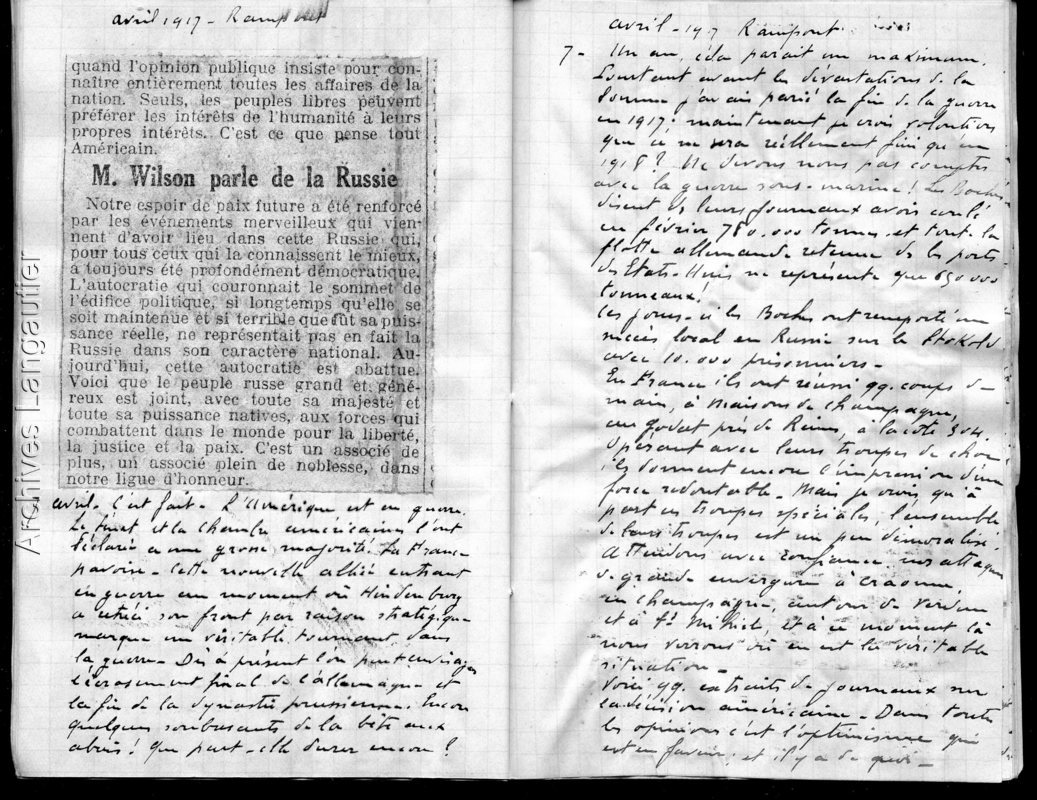 avril 1917 - Rampont
quand l'opinion publique insiste pour con-
naître entièrement toutes les affaires de la
nation. Seuls, les peuples libres peuvent
préférer les intérêts de l'humanité à leurs
propres intérêts. C'est ce que pense tout
Américain.
M. Wilson parle de la Russie
Notre espoir de paix future a été renforcé
par les événements merveilleux qui vien-
nent d'avoir lieu dans cette Russie qui,
pour tous ceux qui la connaissent le mieux,
a toujours été profondément démocratique.
L'autocratie qui couronnait le sommet de
l'édifice politique, si longtemps qu'elle se
soit maintenue et si terrible que fût sa puis-
sance réelle, ne représentait pas en fait la
Russie dans son caractère national. Au-
jourd'hui, cette autocratie est abattue.
Voici que le peuple russe grand et géné-
reux est joint, avec toute sa majesté et
toute sa puissance natives, aux forces qui
combattent dans le monde pour la liberté,
la justice et la paix. C'est un associé de
plus, un associé plein de noblesse, dans
notre ligue d'honneur.
avril - C'est fait - L'Amérique est en guerre.
Le Sénat et la chambre américaine l'ont
déclaré a une grosse majorité. La France
pavoise - Cette nouvelle alliée entrant
en guerre au moment où Hindenburg
a rétréci son front par raison stratégique
marque un véritable tournant dans
la guerre - Dès à présent l'on peut envisager
l'écrasement final de l'Allemagne et
la fin de la dynastie prussienne. Encore
quelques soubresauts de la bête aux
abois! que peut-elle durer encore?
avril - 1917 Rampont
7 - Un an, cela parait un maximum.
Pourtant avant les dévastations de la
Somme j'avais parié la fin de la guerre
en 1917; maintenant je crois volontiers
que ce ne sera réellement fini qu'en
1918? Ne devons nous pas compter
avec la guerre sous-marine! Les Boches
disent ds leurs journaux avoir coulé
en février 780.000 tonnes et toute la
flotte allemande retenue ds les ports
des Etats-Unis ne représente que 650 000
tonneaux!
Ces jours-ci les Boches ont remporté un
succès local en Russie sur le Stokod
avec 10.000 prisonniers -
En France ils ont réussi qq. coups de
main, à Maisons de Champagne,
au godat près de Reims, à la cote 304.
Opérant avec leurs troupes de choc
ils donnent encore l'impression d'une
force redoutable - Mais je crois qu'à
part ces troupes spéciales, l'ensemble
de leurs troupes est un peu démoralisé.
Attendons avec confiance nos attaques
de grande envergure à Craonne,
en Champagne, autour de Verdun
et à St Mihiel, et à ce moment là
nous verrons où en est la véritable
situation -
Voici qq. extraits de journaux sur
la décision américaine - Dans toutes
les opinions c'est l'optimisme qui
est en faveur, et il y a de quoi -
Archives Langautier